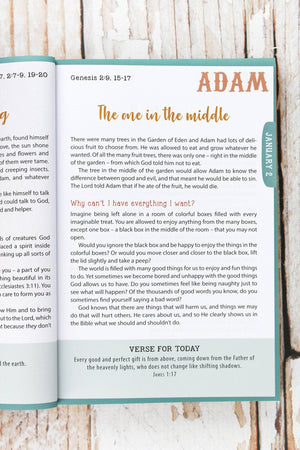 , 2:7-9, 19-20
ng
earth, found himself
ove, the sun shone
es and flowers and
of them were tame.
d creeping insects,
dam, and whatever
y like himself to talk
d could talk to God,
d and helper.
ds of creatures God
aced a spirit inside
nking up all sorts of
you – a part of you
thing beautiful in its
cclesiastes 3:11). You
care to form you as
ow Him and to bring
ut to the Lord, which
t because they don't
l the earth.
Genesis 2:9, 15-17
ADAM
The one in the middle
JANUARY 2
There were many trees in the Garden of Eden and Adam had lots of deli-
cious fruit to choose from. He was allowed to eat and grow whatever he
wanted. Of all the many fruit trees, there was only one – right in the middle
of the garden – from which God told him not to eat.
The tree in the middle of the garden would allow Adam to know the
difference between good and evil, and that meant he would be able to sin.
The Lord told Adam that if he ate of the fruit, he would die.
Why can't I have everything I want?
Imagine being left alone in a room of colorful boxes filled with every
imaginable treat. You are allowed to enjoy anything from the many boxes,
except one box – a black box in the middle of the room – that you may not
open.
Would you ignore the black box and be happy to enjoy the things in the
colorful boxes? Or would you move closer and closer to the black box, lift
the lid slightly and take a peep?
The world is filled with many good things for us to enjoy and fun things
to do. Yet sometimes we become bored and unhappy with the good things
God allows us to have. Do you sometimes feel like being naughty just to
see what will happen? Of the thousands of good words you know, do you
sometimes find yourself saying a bad word?
God knows that there are things that will harm us, and things we may
do that will hurt others. He cares about us, and so He clearly shows us in
the Bible what we should and shouldn't do.
VERSE FOR TODAY
Every good and perfect gift is from above, coming down from the Father of
the heavenly lights, who does not change like shifting shadows.
James 1:17